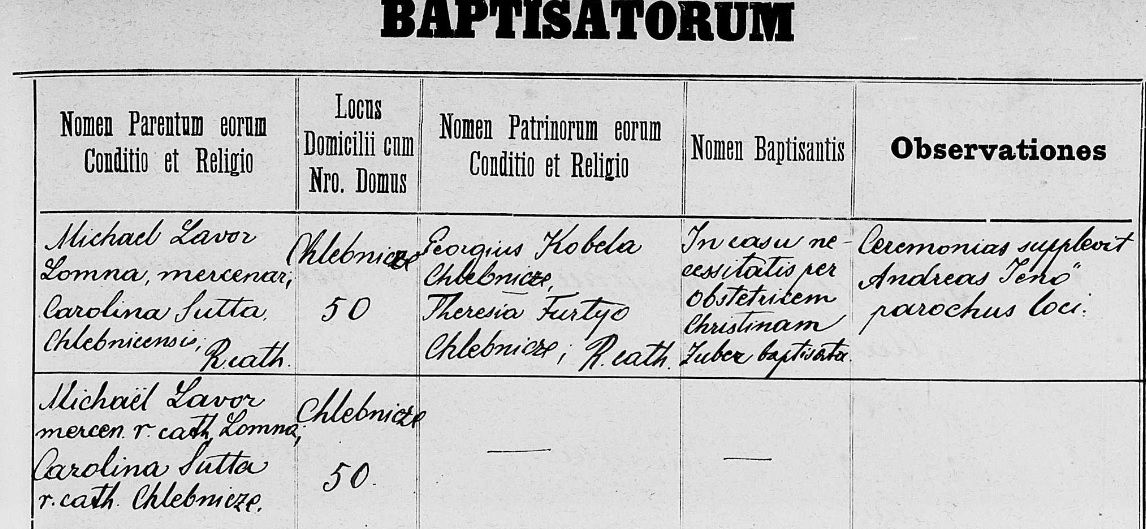 BAPTISATORUM
Nomen Parentum eorum
Conditio et Religio
Locus
Domicilii cum
Nro. Domus
Nomen Patrinorum eorum
Conditio et Religio
Nomen Baptisantis
Observationes
Michael Lavor
Lomna, mercenar;
Carolina Sutta,
Chlebnicensis;
R. cath.
Chlebnicze
50
Georgius Kobela
Chlebnicze,
Theresia Furtyo
Chlebnicze; R. cath.
In casu ne-
cessitatis per
obstetricem
Christinam
Zuber baptisata.
Ceremonias supplevit
Andreas Jenő
parochus loci.
Michaël Lavor
mercen. r. cath. Lomna,
Carolina Sutta
r. cath. Chlebnicze.
Chlebnicze
50.